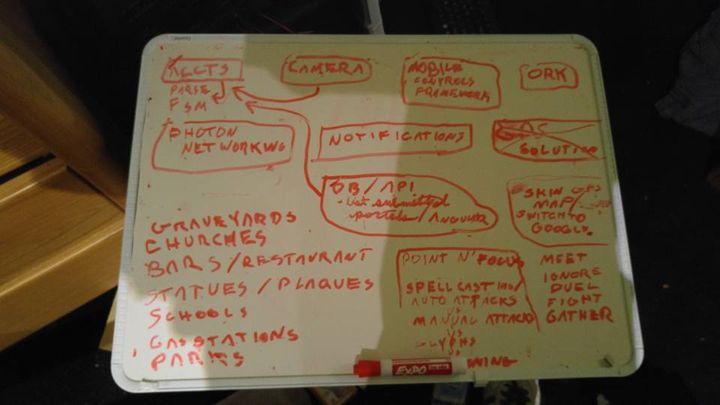 ACCTS
PARSE
FSM
CAMERA
MOBILE
CONTROLS
FRAMEWORK
ORK
PHOTON
NETWORKING
NOTIFICATIONS
SOLUTION
DB/API
- List submitted
portals/ANGULAR
SKIN GPS
MAP/
SWITCH TO
GOOGLE
GRAVEYARDS
CHURCHES
BARS/RESTAURANT
STATUES/PLAQUES
SCHOOLS
GAS STATIONS
PARKS
POINT N' FOCUS
SPELLCASTING/
AUTO ATTACKS
VS
MANUAL ATTACKS
VS
GLYPHS
VS
MEET
IGNORE
DUEL
FIGHT
GATHER
EXPO